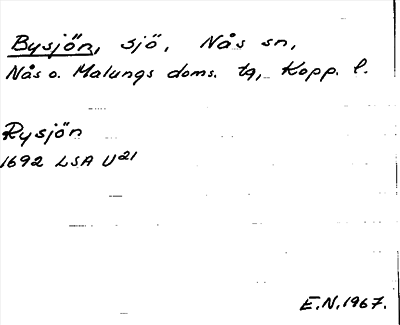 Bysjön, sjö, Nås sn,
Nås o. Malungs doms. tg, Kopp. l.
Rysjön
1692 LSA U21
E.N. 1967.